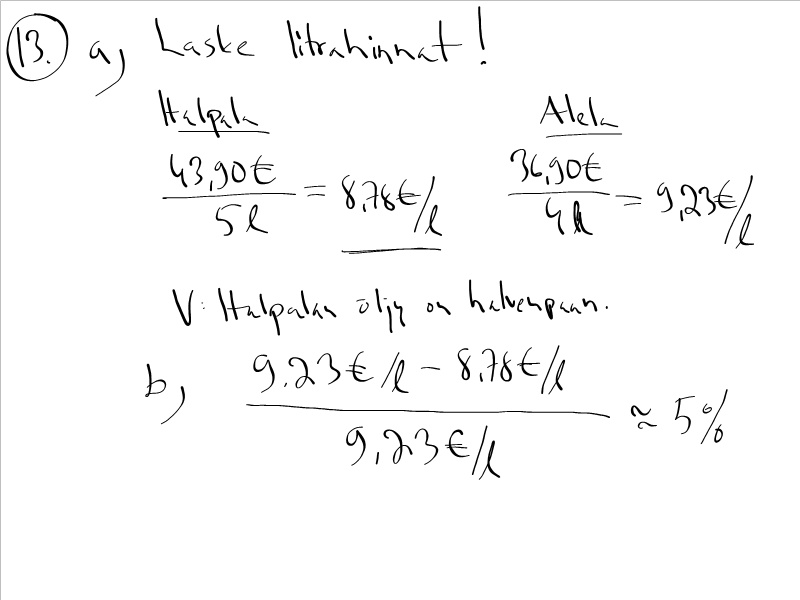 13. a) Laske litrahinnat!
Halpala Alela
43,90€/5l = 8,78€/l 36,90€/4l = 9,23€/l
V: Halpalan öljy on halvempaan.
b) (9.23€/l - 8,78€/l)/(9,23€/l) ≈ 5%